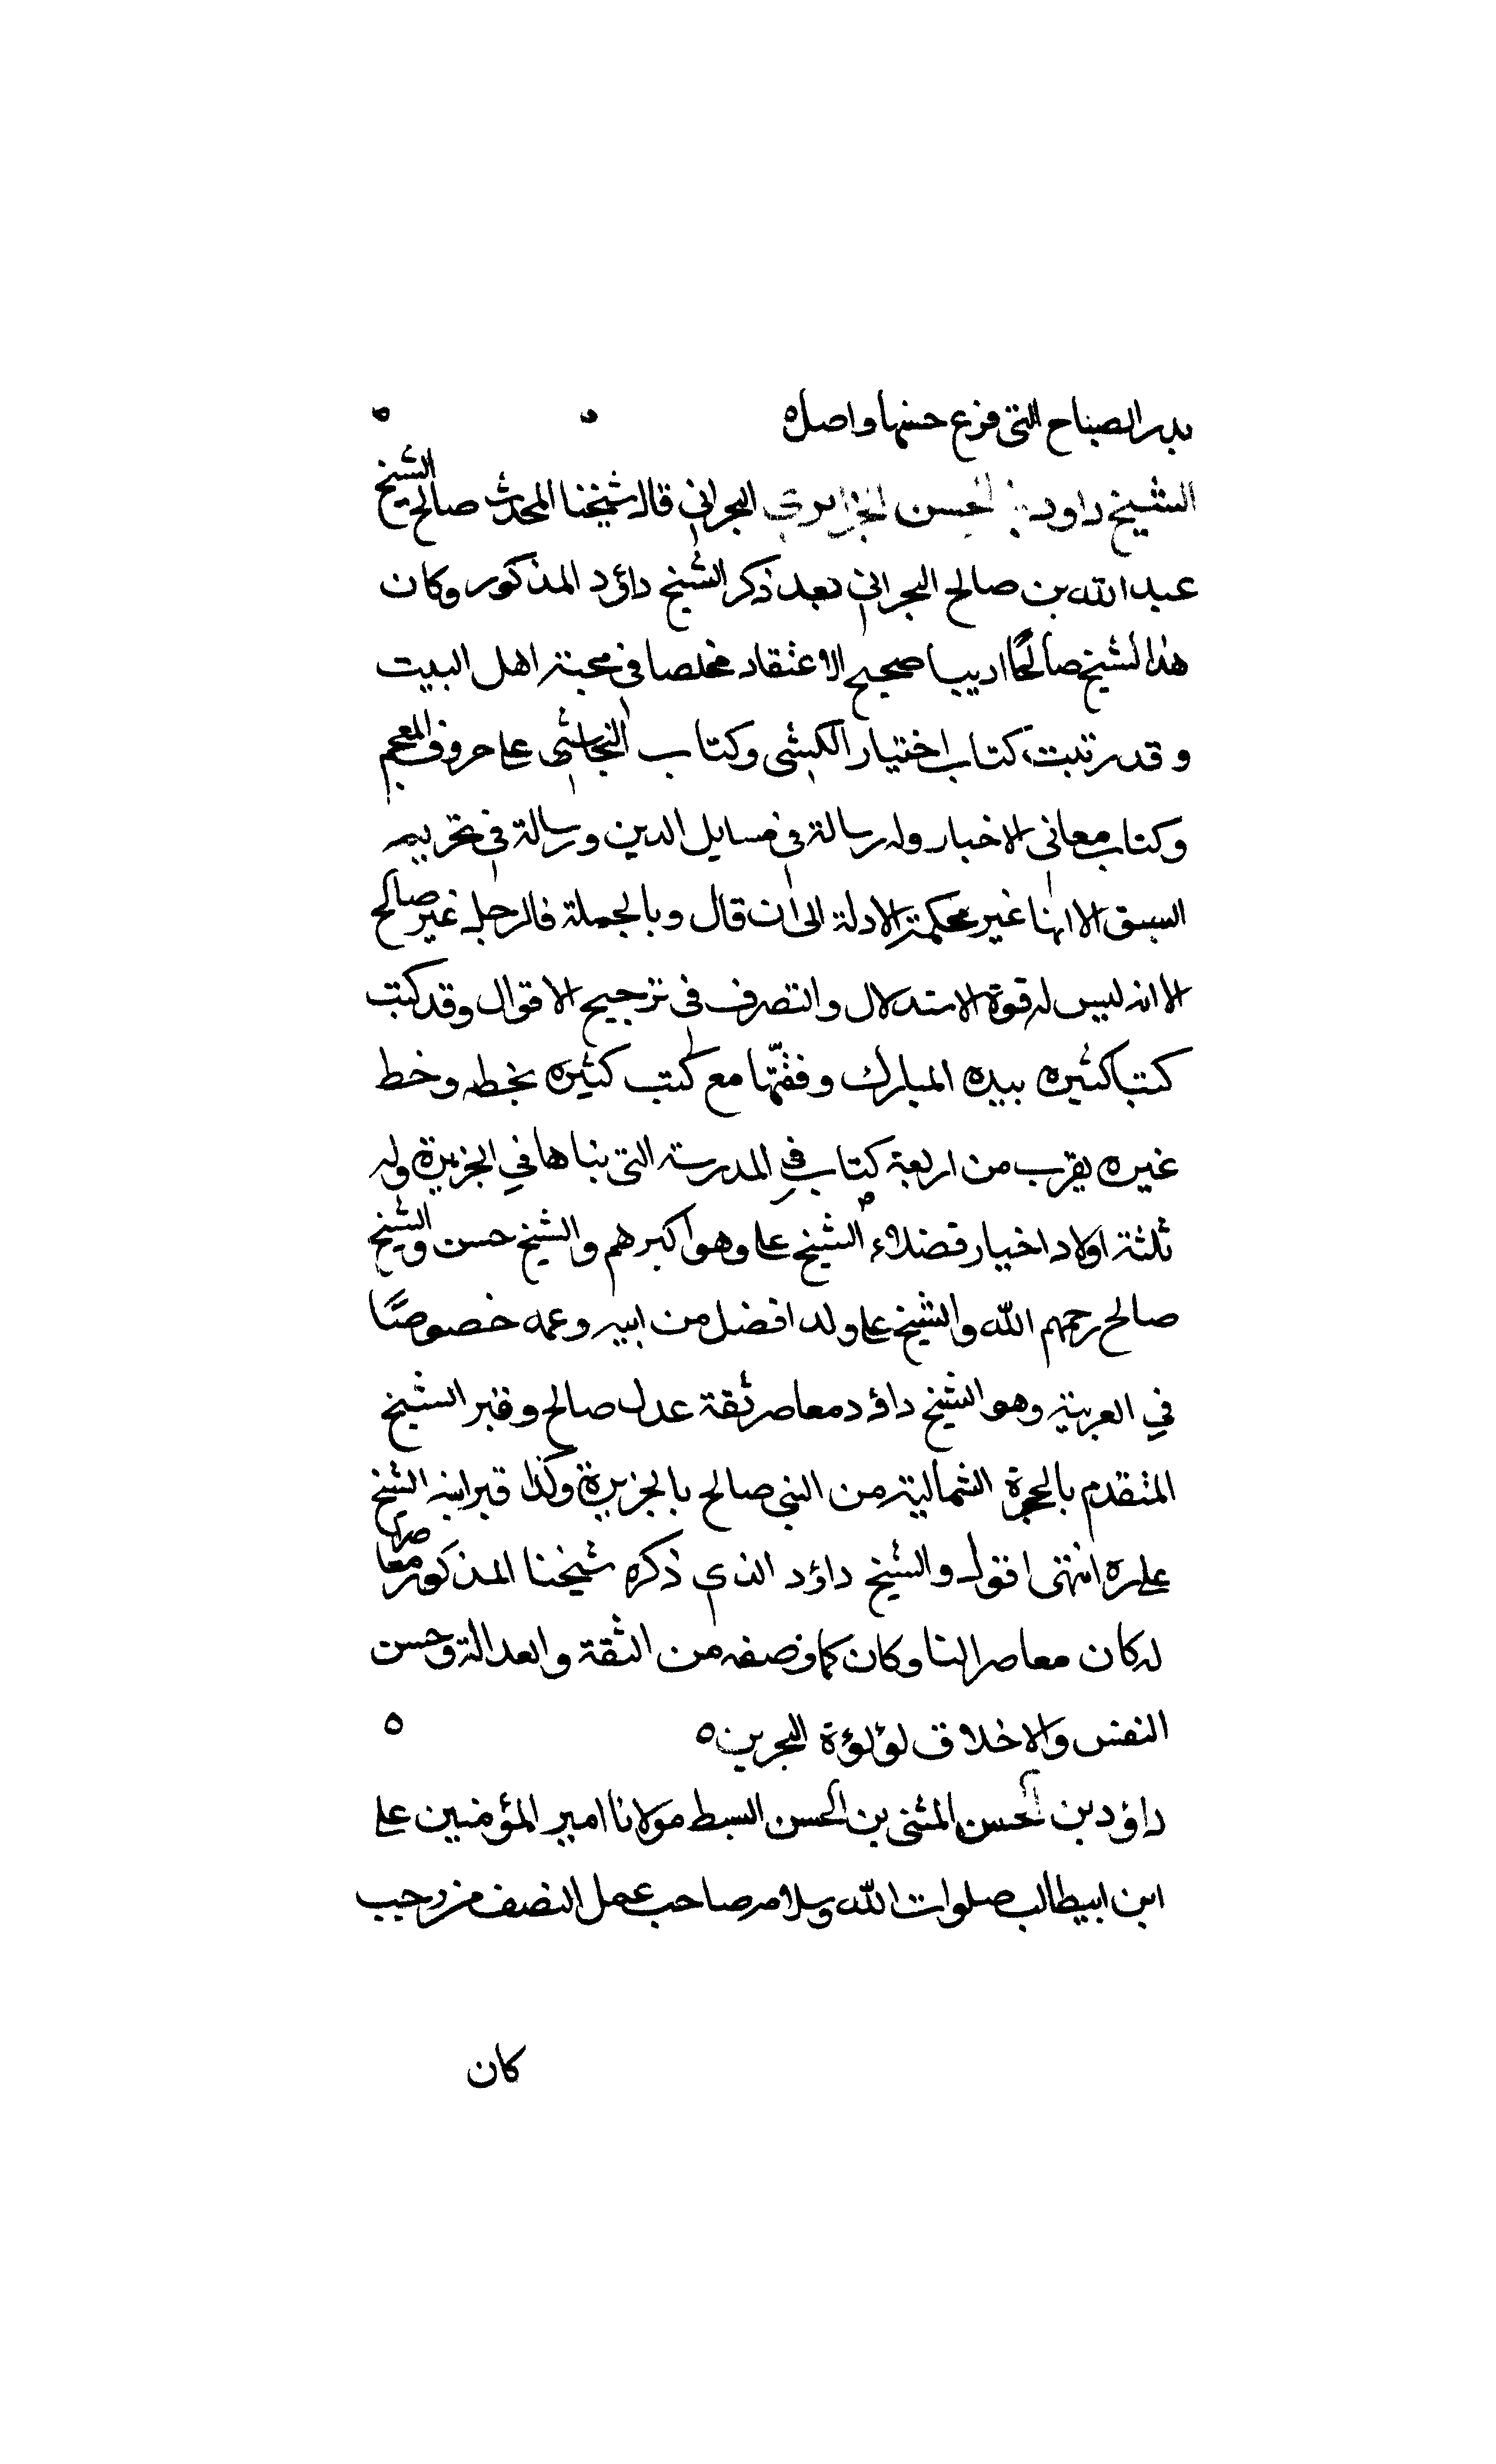 بدر الصباح التي فرع حسنها واصله
الشيخ داود بن الحسن الجزايري البحراني قال شيخنا المحدث صالح الشيخ
عبد الله بن صالح البحراني بعد ذكر الشيخ داؤد المذكور وكان
هذا الشيخ صالحًا اديبا صحيح الاعتقاد مخلصا في محبة اهل البيت
وقد رتبت كتاب اختيار الكشي وكتاب النجاشي على حروف المعجم
وكتاب معاني الاخبار وله رسالة في مسايل الدين ورسالة في تحريم
السبق الا انها غير محكمة الادلة الى ان قال وبالجملة فالرجل غير صالح
الا انه ليس له قوة الاستدلال والتصرف في ترجيح الاقوال وقد كتب
كتبا كثيره بيده المبارك وفقّها مع كتب كثيره بخطه وخط
غيره يقرب من اربعة كتاب في المدرسة التي بناها في الجزيرة وله
ثلثة اولاد اخيار فضلاء الشيخ على وهو اكبرهم والشيخ حسن والشيخ
صالح رحمهم الله والشيخ على ولد افضل من ابيه وعمه خصوصًا
في العربية وهو الشيخ داؤد معاصر ثقة عدل صالح وقبر الشيخ
المتقدم بالحجرة الشمالية من النبي صالح بالجزيرة وكذا قبر ابنه الشيخ
على ره انتهى اقول والشيخ داؤد الذي ذكره شيخنا المذكور معاصرا
له كان معاصرا لنا وكان كما وصفه من الثقة والعدالة وحسن
النفس والاخلاق لؤلؤة البحرين ٥ ٥
داؤد بن الحسن المثنى بن الحسن السبط مولانا امير المؤمنين على
ابن ابيطالب صلوات الله وسلامه صاحب عمل النصف من رجب
كان